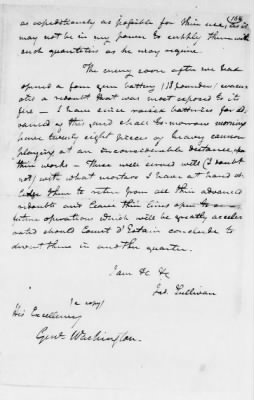 164
as expeditiously as possible for their use, as it
may not be in my power to supply them with
such quantities as he may require.
The enemy soon after we had
opened a four gun battery (18 pounders) evacu-
ated a redoubt that was most exposed to its
fire - I have since raised batteries
of the yard shall to-morrow morning
have twenty eight pieces of heavy cannon
playing at an inconsiderable distance upon
their works - These well served will (I doubt
not) with what mortars I have at hand
them to retire from all their advanced
redoubts and leave their lines open to our
future operations which will be greatly acceler-
ated should Count d'Estain conclude to
divert them in another quarter.
I am &c &c
Jno. Sullivan
(a copy)
His Excellency
Genl. Washington.